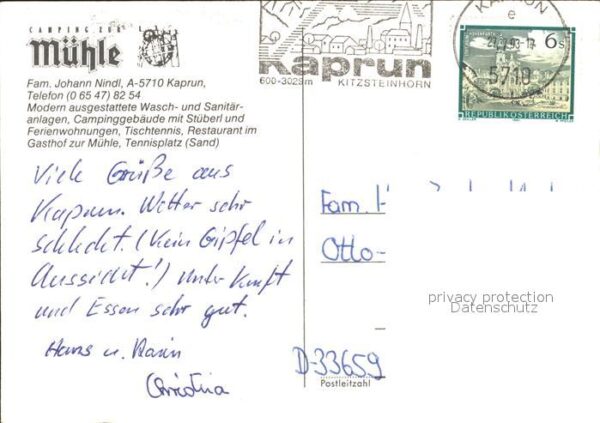 CAMPING ZUR
Mühle
Fam. Johann Nindl, A-5710 Kaprun,
Telefon (0 65 47) 82 54
Modern ausgestattete Wasch- und Sanitär-
anlagen, Campinggebäude mit Stüberl und
Ferienwohnungen, Tischtennis, Restaurant im
Gasthof zur Mühle, Tennisplatz (Sand)
Kaprun
600-3029m KITZSTEINHORN
KAPRUN
e
5710
6s
REPUBLIK ÖSTERREICH
Viele Grüße aus
Kaprun. Wetter sehr
schlecht. (Kein Gipfel in
Aussicht!) Unterkunft
und Essen sehr gut.
Hans u. Karin
Christina
Fam. H
Otto-
privacy protection
Datenschutz
D-33659
Postleitzahl